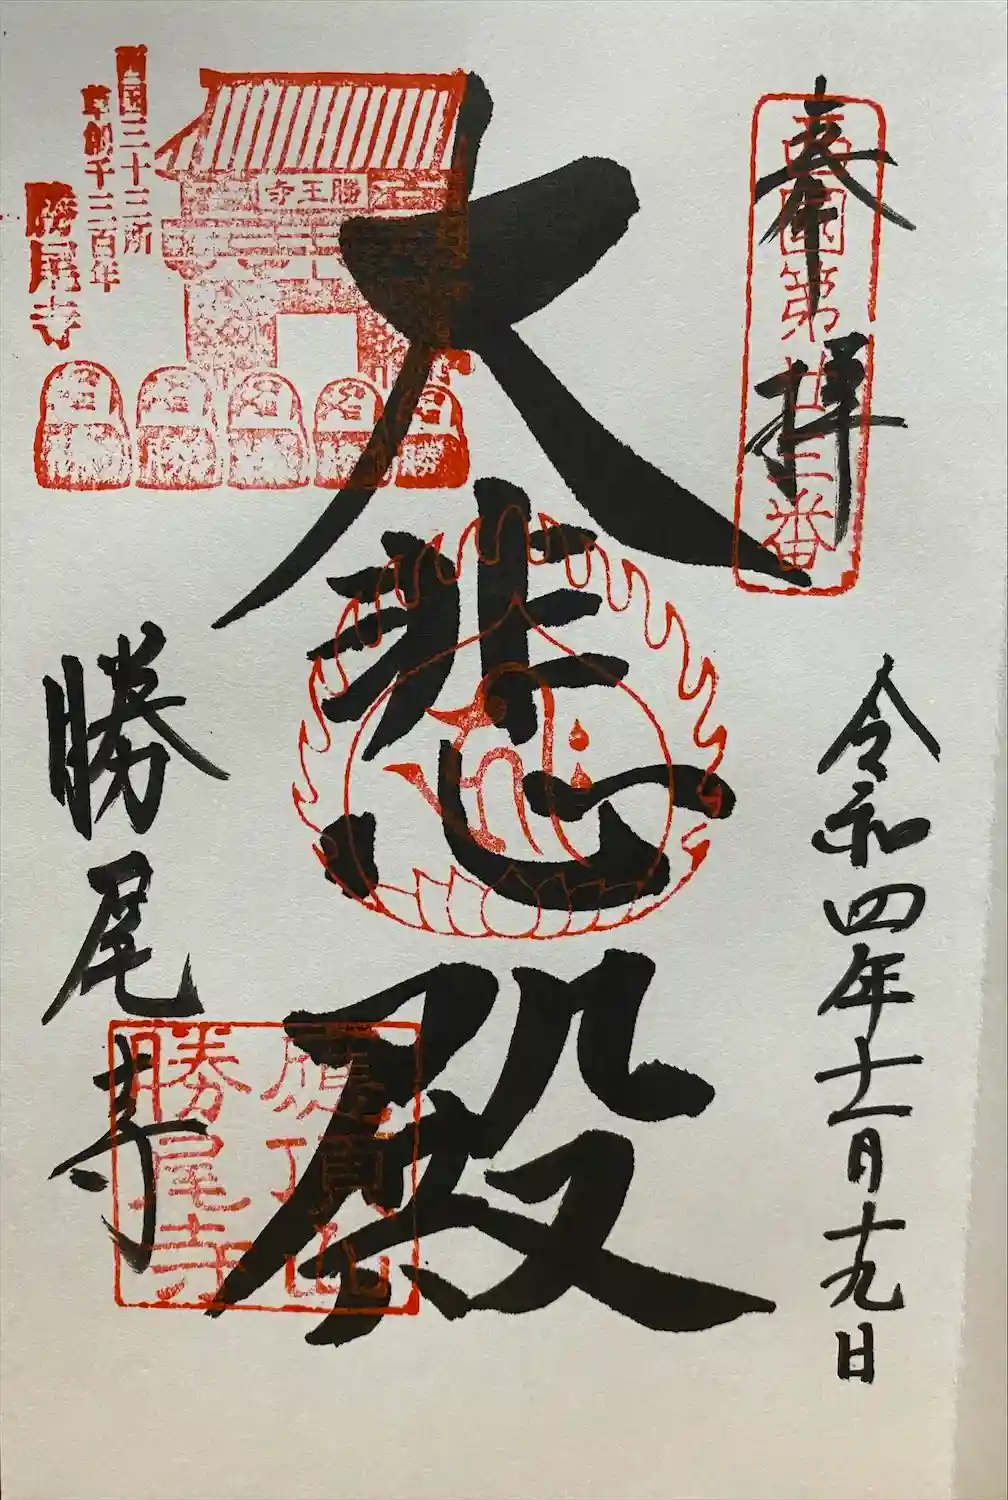 奉拝
西國第廿三番
令和四年十一月十九日
大悲殿
勝尾寺
應頂山
勝尾寺
西国三十三所
草創千三百年
勝尾寺
勝王寺
勝